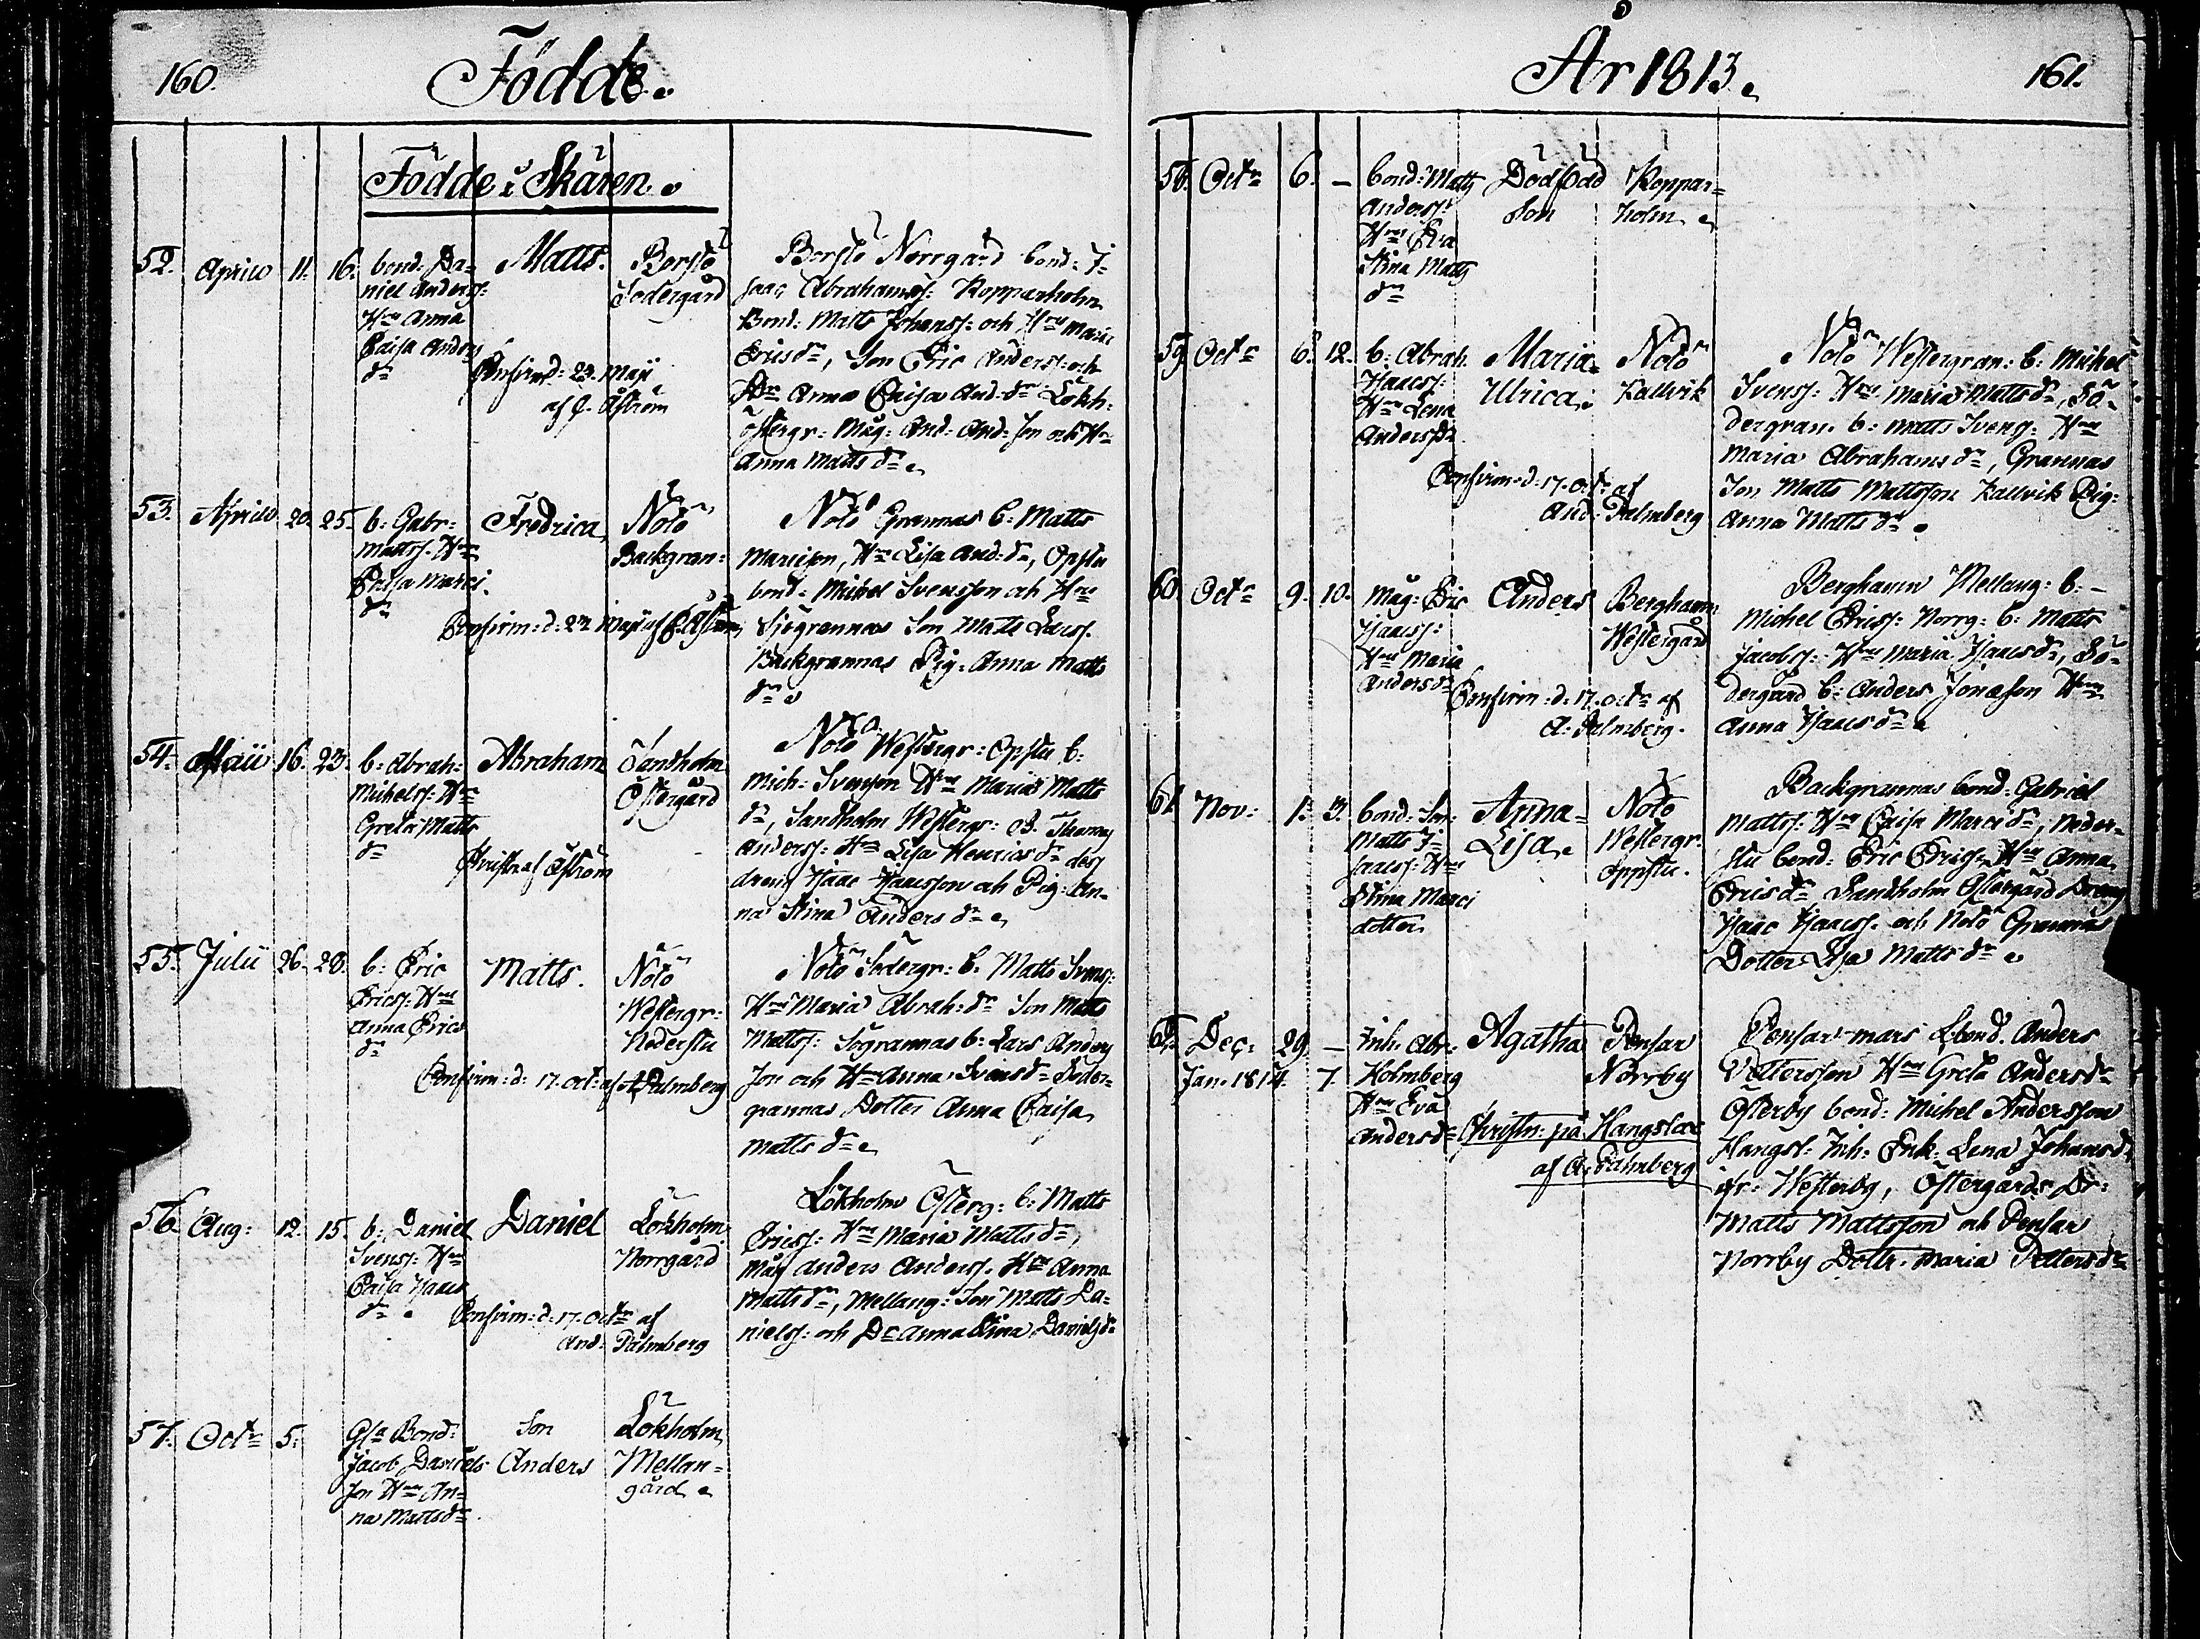 160.
Födde.
Födde i Skären.
52. Aprill 11. 16. bond. Da=
niel Anderss:
Hru Anna
Caisa Anders
dr
Matts.
Confirm d: 22. Maji
af C. Åström
Borstö
Södergård
Borstö Norrgård bond: I=
saac Abrahamss: Kopparholm
Bond: Matts Johanss: och Hru Maria
Ericsdr, Son Eric Anderss: och
Dr Anna Caisa And:dr Lökh:
östergr: Måg: And: And: Son och Hu
Anna Mattsdr
53. Aprill 20. 25. b: Gabr:
Mattss. Hru
Caisa Marci
dr
Fredrica,
Confirm: d: 22 Maji af C. Åström
Nötö
Backgran:
Nötö Grannas b: Matts
Marcison, Hu Lisa And:dr, Opstu
bond: Michel Svensson och Hru
Sjögrannas Son Matts Larss.
Backgrannas Pig: Anna Matts
dr
54. Maii 16. 23. b: Abrah:
Michelss: Hru
Greta Matts
dr
Abraham
Christn af Åström
Sandholm
Östergård
Nötö Westergr: Opstu b:
Mich: Svenson Hru Maria Matts
dr, Sandholm Westergr: B. Thomas
Anderss: Hru Lisa Henricsdr dess
dreng Isaac Isaacsson och Pig: An=
na Stina Andersdr
55. Julii 26. 28. b: Eric
Ericss: Hru
Anna Erics
dr
Matts.
Confirm: d: 17. Oct: af A Palmberg
Nötö
Westergr:
Nederstu
Nötö Södergr: b: Matts Svenss:
Hru Maria Abrah:dr Son Matts
Mattss: Sögrannas b: Lars Anders
son och Hru Anna Svensdr Söder=
grannas Dotter Anna Caisa
Mattsdr
56. Aug: 12. 15. b: Daniel
Svenss: Hru
Caisa Isaacs
dr
Daniel
Confirm: d: 17. Octr af
And: Palmberg
Lökholm
Norrgård
Lökholm Österg: b: Matts
Ericss: Hru Maria Mattsdr,
Måg Anders Anderss. Hru Anna
Mattsdr, Mellang: Son Matts Da=
nielss: och Dr Anna Stina Danielsdr
57. Octr 5. Gla Bond:
Jacob Daniels
son Hru An=
na Mattsdr
Son
Anders
Lökholm
Mellan=
gård
År 1813.
161.
58. Octr 6. — bond: Matts
Anderss:
Hru Eva
Stina Matts
dr
Dödfödd
Son
Koppar=
holm
59. Octr 6. 12. b: Abrah.
Isaacss:
Hru Lena
Andersdr
Maria
Ulrica
Confirm. d: 17. Oct: af
And: Palmberg
Nötö
Kallvik
Nötö Westergran: b: Michel
Svenss: Hru Maria Mattsdr, Sö=
dergran. b: Matts Svenss: Hru
Maria Abrahamsdr, Grannas
Son Matts Mattsson Kallvik Pig:
Anna Mattsdr
60. Octr 9. 10. Måg: Eric
Isaacss:
Hru Maria
Andersdr
Anders
Confirm: d. 17. Octr af
A. Palmberg.
Berghamn
Westergård
Berghamn Mellang: b: —
Michel Ericss: Norrg: b: Matts
Jacobss: Hru Maria Isaacsdr, Sö=
dergård b: Anders Jonasson Hru
Anna Isaacsdr
61. Nov: 1. 3. bond: Son:
Matts I=
saacss: Hru
Stina Marci
dotter
Anna=
Lisa
Nötö
Westergr:
Oppstu.
Backgrannas bond: Gabriel
Mattss: Hru Caisa Marcidr, Neder=
stu bond: Eric Ericss: Hru Anna
Ericsdr, Sandholm Östergård Dreng
Isaac Isaacss. och Nötö Grannas
Dotter Lisa Mattsdr
62. Dec. 29. — Inh: Abr:
Jan. 1814. 7. Holmberg
Hru Eva
Andersdr
Agatha
Christn: på Hangslax
af A. Palmberg
Pensar
Norrby
Pensar-mars bond. Anders
Pettersson Hru Greta Andersdr
Österby bond: Michel Andersson
Hangsl: Inh: Enk: Lena Johansd:
ifr: Westerby, Östergårds Dr:
Matts Mattsson och Pensar
Norrby Dottr. Maria Pettersdr